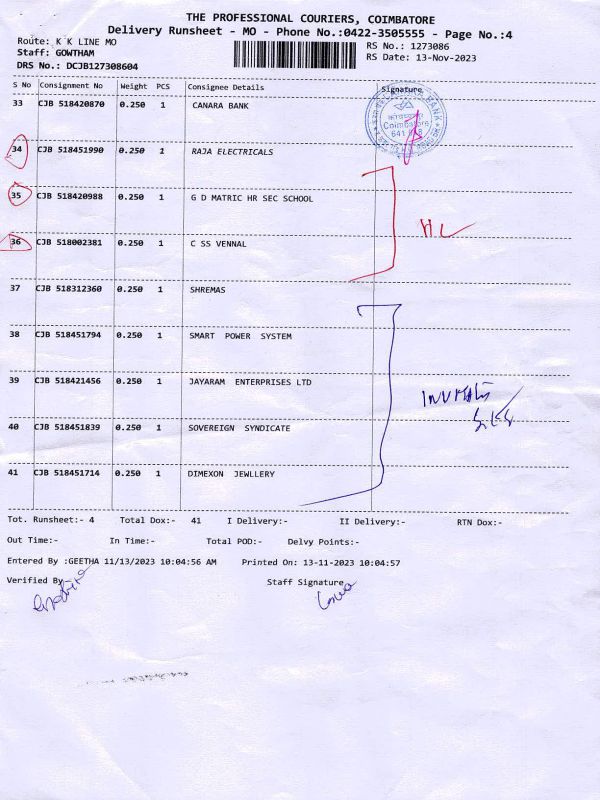 THE PROFESSIONAL COURIERS, COIMBATORE
Delivery Runsheet - MO - Phone No.:0422-3505555 - Page No.:4
Route: K K LINE MO
RS No.: 1273086
Staff: GOWTHAM
RS Date: 13-Nov-2023
DRS No.: DCJB127308604
S No Consignment No Weight PCS Consignee Details Signature
33 CJB 518420870 0.250 1 CANARA BANK
Coimbatore
34 CJB 518451990 0.250 1 RAJA ELECTRICALS
35 CJB 518420988 0.250 1 G D MATRIC HR SEC SCHOOL
36 CJB 518002381 0.250 1 C SS VENNAL
37 CJB 518312360 0.250 1 SHREMAS
38 CJB 518451794 0.250 1 SMART POWER SYSTEM
39 CJB 518421456 0.250 1 JAYARAM ENTERPRISES LTD
40 CJB 518451839 0.250 1 SOVEREIGN SYNDICATE
41 CJB 518451714 0.250 1 DIMEXON JEWLLERY
Tot. Runsheet:- 4 Total Dox:- 41 I Delivery:- II Delivery:- RTN Dox:-
Out Time:- In Time:- Total POD:- Delvy Points:-
Entered By :GEETHA 11/13/2023 10:04:56 AM Printed On: 13-11-2023 10:04:57
Verified By- Staff Signature